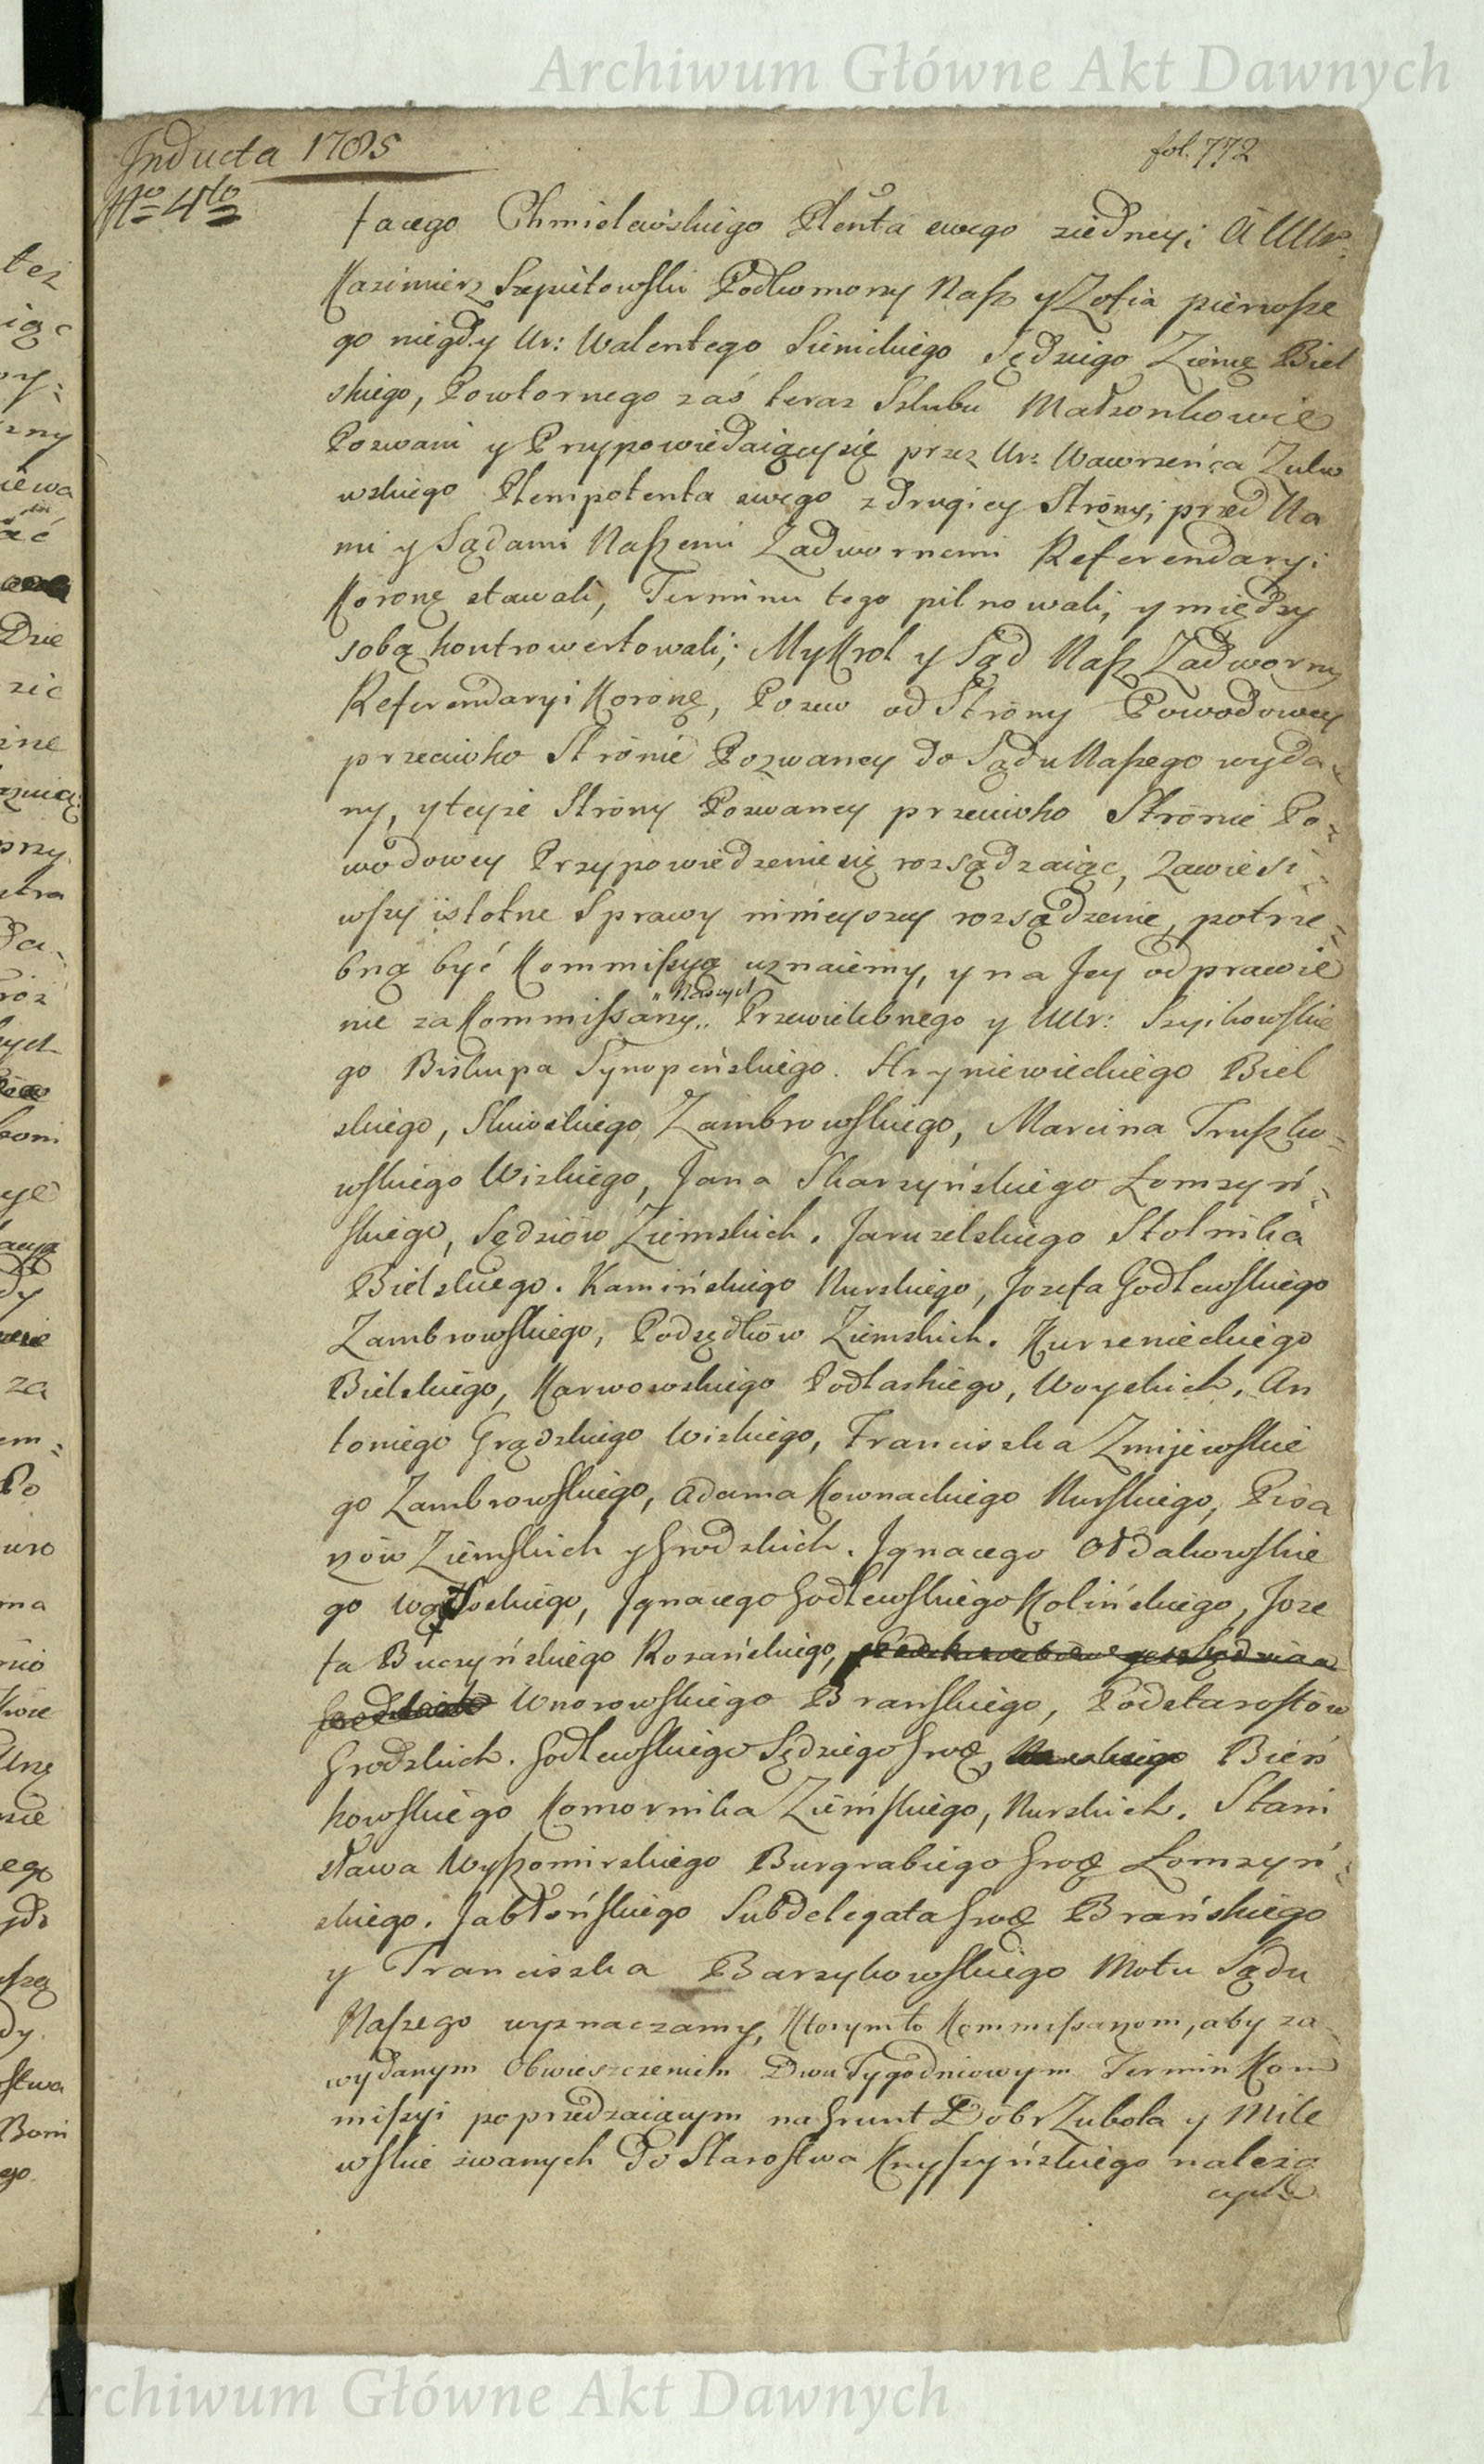 Archiwum Główne Akt Dawnych
Inducta 1785
fol. 772
No 4to
facego Chmielewskiego Plenta swego ziedney; a Ur
Kazimierz Szpiłowski Podkomorzy Nasz y Zofia pierwsze
go niegdy Ur: Walentego Sienickiego Sędziego Ziemę Biel
skiego, Powtornego zaś teraz Szlubu Małżonkowie
Pozwani y Przypowiedaiący się przez Ur: Wawrzeńca Zuko
wskiego Plempotenta swego z drugiey Strony; przed Na
mi y Sądami Naszemi Zadwornemi Referendaryi
Koronę stawali, Terminu tego pilnowali, y między
sobą kontrowertowali; My Krol y Sąd Nasz Zadworny
Referendaryi Koronę, Pozew od Strony Powodowey
przeciwko Stronie Pozwaney do Sądu Naszego wyda-
ny, y teyże Strony Pozwaney przeciwko Stronie Po-
wodowey Przypowiedzenie się rozsądzaiąc, Zawiesi-
wszy istotne Sprawy ninieyszey rozsądzenie, potrze-
bną być Kommissyą uznaiemy, y na Jey odprawie
nie za Kommissarzy „Naszych„ Przewielebnego y Ur: Szyikowskie
go Biskupa Synopeńskiego. Hryniewieckiego Biel
skiego, Skiwskiego Zambrowskiego, Marcina Truszko-
wskiego Wizkiego, Jana Skarzyńskiego Łomzyń-
skiego, Sędziow Ziemskich. Jaruzelskiego Stolnika
Bielskiego. Kamińskiego Nurskiego, Jozefa Godlewskiego
Zambrowskiego, Podsędkow Ziemskich. Kurzenieckiego
Bielskiego, Karwowskiego Podlaskiego, Woyskich. An
toniego Grądzkiego Wizkiego, Franciszka Zmijewskie
go Zambrowskiego, Adama Kownackiego Nurskiego, Pisa
rzow Ziemskich y Grodzkich. Ignacego Ołdakowskie
go Wąsoskiego, Ignacego Godlewskiego Kolińskiego, Joze
fa Buczyńskiego Rozańskiego,
Wnorowskiego Branskiego, Podstarostow
Grodzkich. Godlewskiego Sędziego Grodę, Bień
kowskiego Komornika Ziemskiego, Nurskich. Stani
sława Wyszomirskiego Burgrabiego Grodę Łomzyń-
skiego. Jabłońskiego Subdelegata Grodę Brańskiego
y Franciszka Barzykowskiego Motu Sądu
Naszego wyznaczamy, Ktorym to Kommissarzom, aby za
wydanym Obwieszczeniem Dwu Tygodniowym Termin Kom
missyi poprzedzaiącym na Grunt Dobr Zubola y Mile
wskie zwanych do Starostwa Knyszyńskiego należą
cych
Archiwum Główne Akt Dawnych